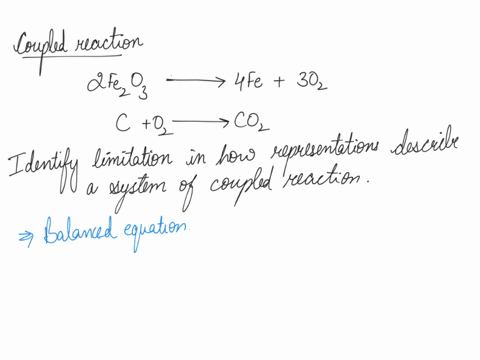 Coupled reaction
2Fe₂O₃ ⟶ 4Fe + 3O₂
C + O₂ ⟶ CO₂
Identify limitation in how representations describe
a system of coupled reaction.
⇒ Balanced equation